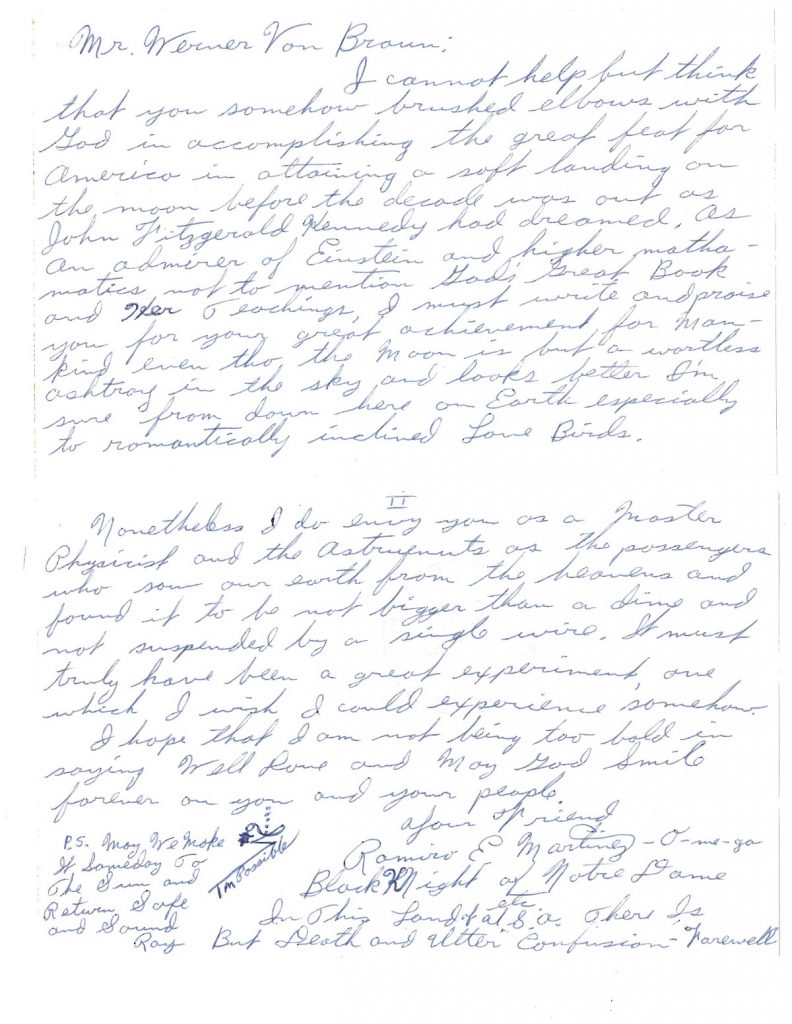 Mr. Werner Von Braun:
I cannot help but think
that you somehow brushed elbows with
God in accomplishing the great feat for
America in attaining a soft landing on
the moon before the decade was out as
John Fitzgerald Kennedy had dreamed. As
an admirer of Einstein and higher matha-
matics not to mention God's Great Book
and Her Teachings, I must write and praise
you for your great achievement for Man-
kind even tho the Moon is but a wortless
ashtray in the sky and looks better I'm
sure from down here on Earth especially
to romantically inclined Love Birds.
II
Nonetheless I do envy you as a Master
Physicist and the as the passengers
who saw our earth from the heavens and
found it to be not bigger than a dime and
not suspended by a single wire. It must
truly have been a great experiment, one
which I wish I could experience somehow.
I hope that I am not being too bold in
saying Well Done and May God Smile
forever on you and your people.
Your Friend
Ramiro E Martinez-O-me-ga
Black Night of Notre Dame
etc
In This Land S.a. There Is
But Death and Utter Confusion-Farewell
P.S. May We Make
It Someday To
The Sun and
Return Safe
and Sound
Ray
I'm Possible